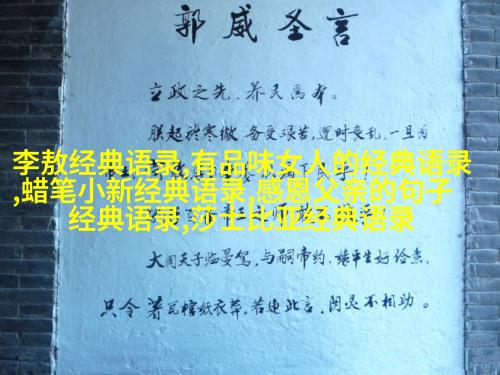 郭威圣言
立政之先，养民為本。
朕起於寒微，备受艰苦，遭时丧乱，一旦為
李敖经典语录,有品味女人的经典语录
,蜡笔小新经典语录,感恩父亲的句子
经典语录,莎士比亚经典语录
大周天子临晏驾，与嗣帝约，缘平生好俭素，
只令著瓦棺纸衣葬。若违此言，阴灵不相助。